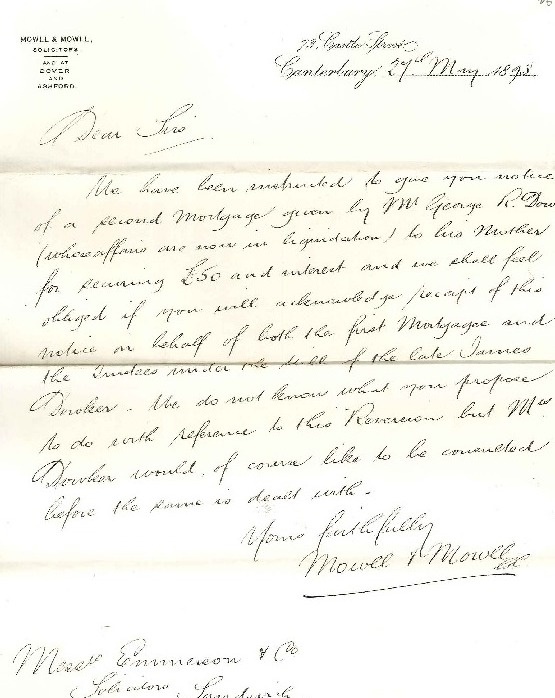 MOWLL & MOWLL,
SOLICITORS
AND AT
DOVER
AND
ASHFORD.
Castle Street
Canterbury, 27th May 1893
Dear Sirs
We have been instructed to give you notice
of a second Mortgage given by Mr George R. Dow
(whose affairs are now in liquidation) to his Mother
for securing £50 and interest and we shall feel
obliged if you will acknowledge receipt of this
notice on behalf of both the first Mortgagee and
the Trustees under the Will of the late James
Dowker. We do not know what you propose
to do with reference to this Reversion but Mrs
Dowker would, of course like to be consulted
before the same is dealt with.
Yours faithfully
Mowll & Mowll
Messrs Emmerson & Co
Solicitors Sandwich